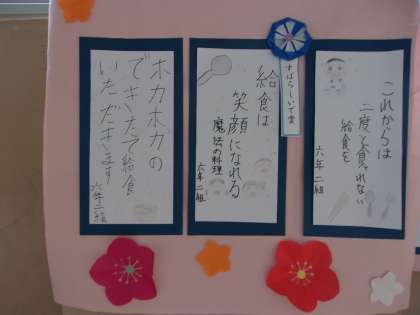 これからは
二度と食べれない
給食を
六年二組
すばらしいで賞
給食は
笑顔になれる
魔法の料理
六年二組
ホカホカの
できたて給食
いただきます
六年二組